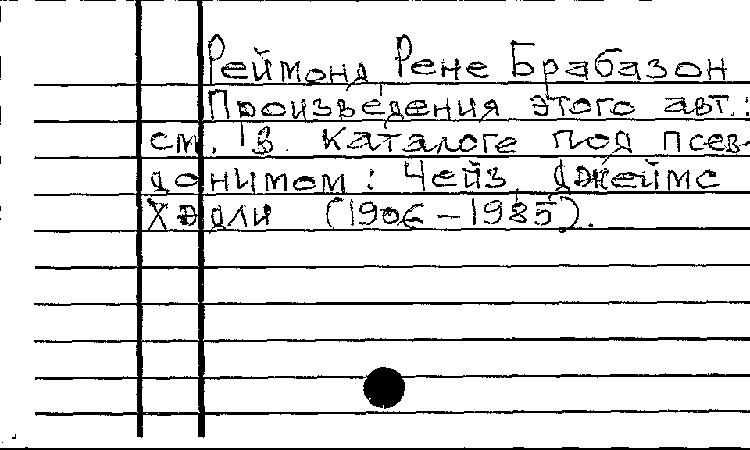 Реймонд, Рене Брабазон
Произведения этого авт.:
см. в каталоге под псев-
донимом: Чейз, Джеймс
Хэдли (1906-1985).